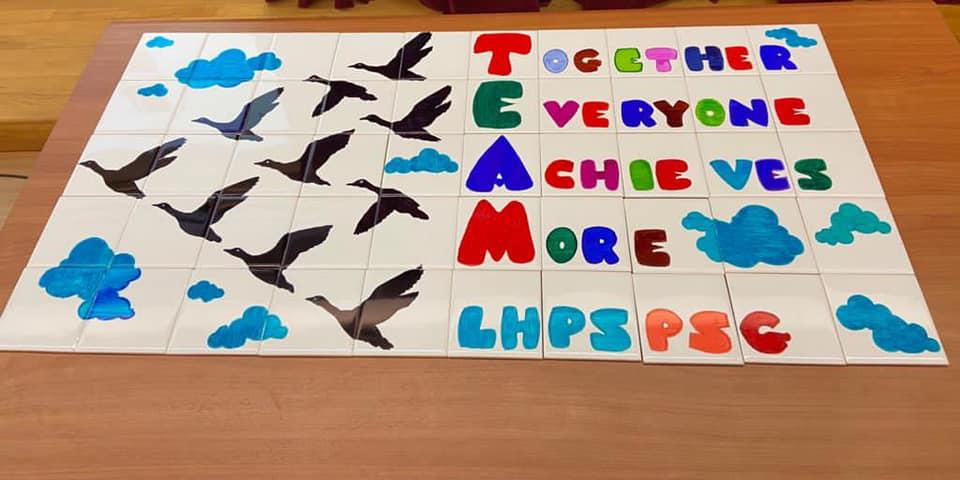 TOGETHER
EVERYONE
ACHIEVES
MORE
LHPS PSG